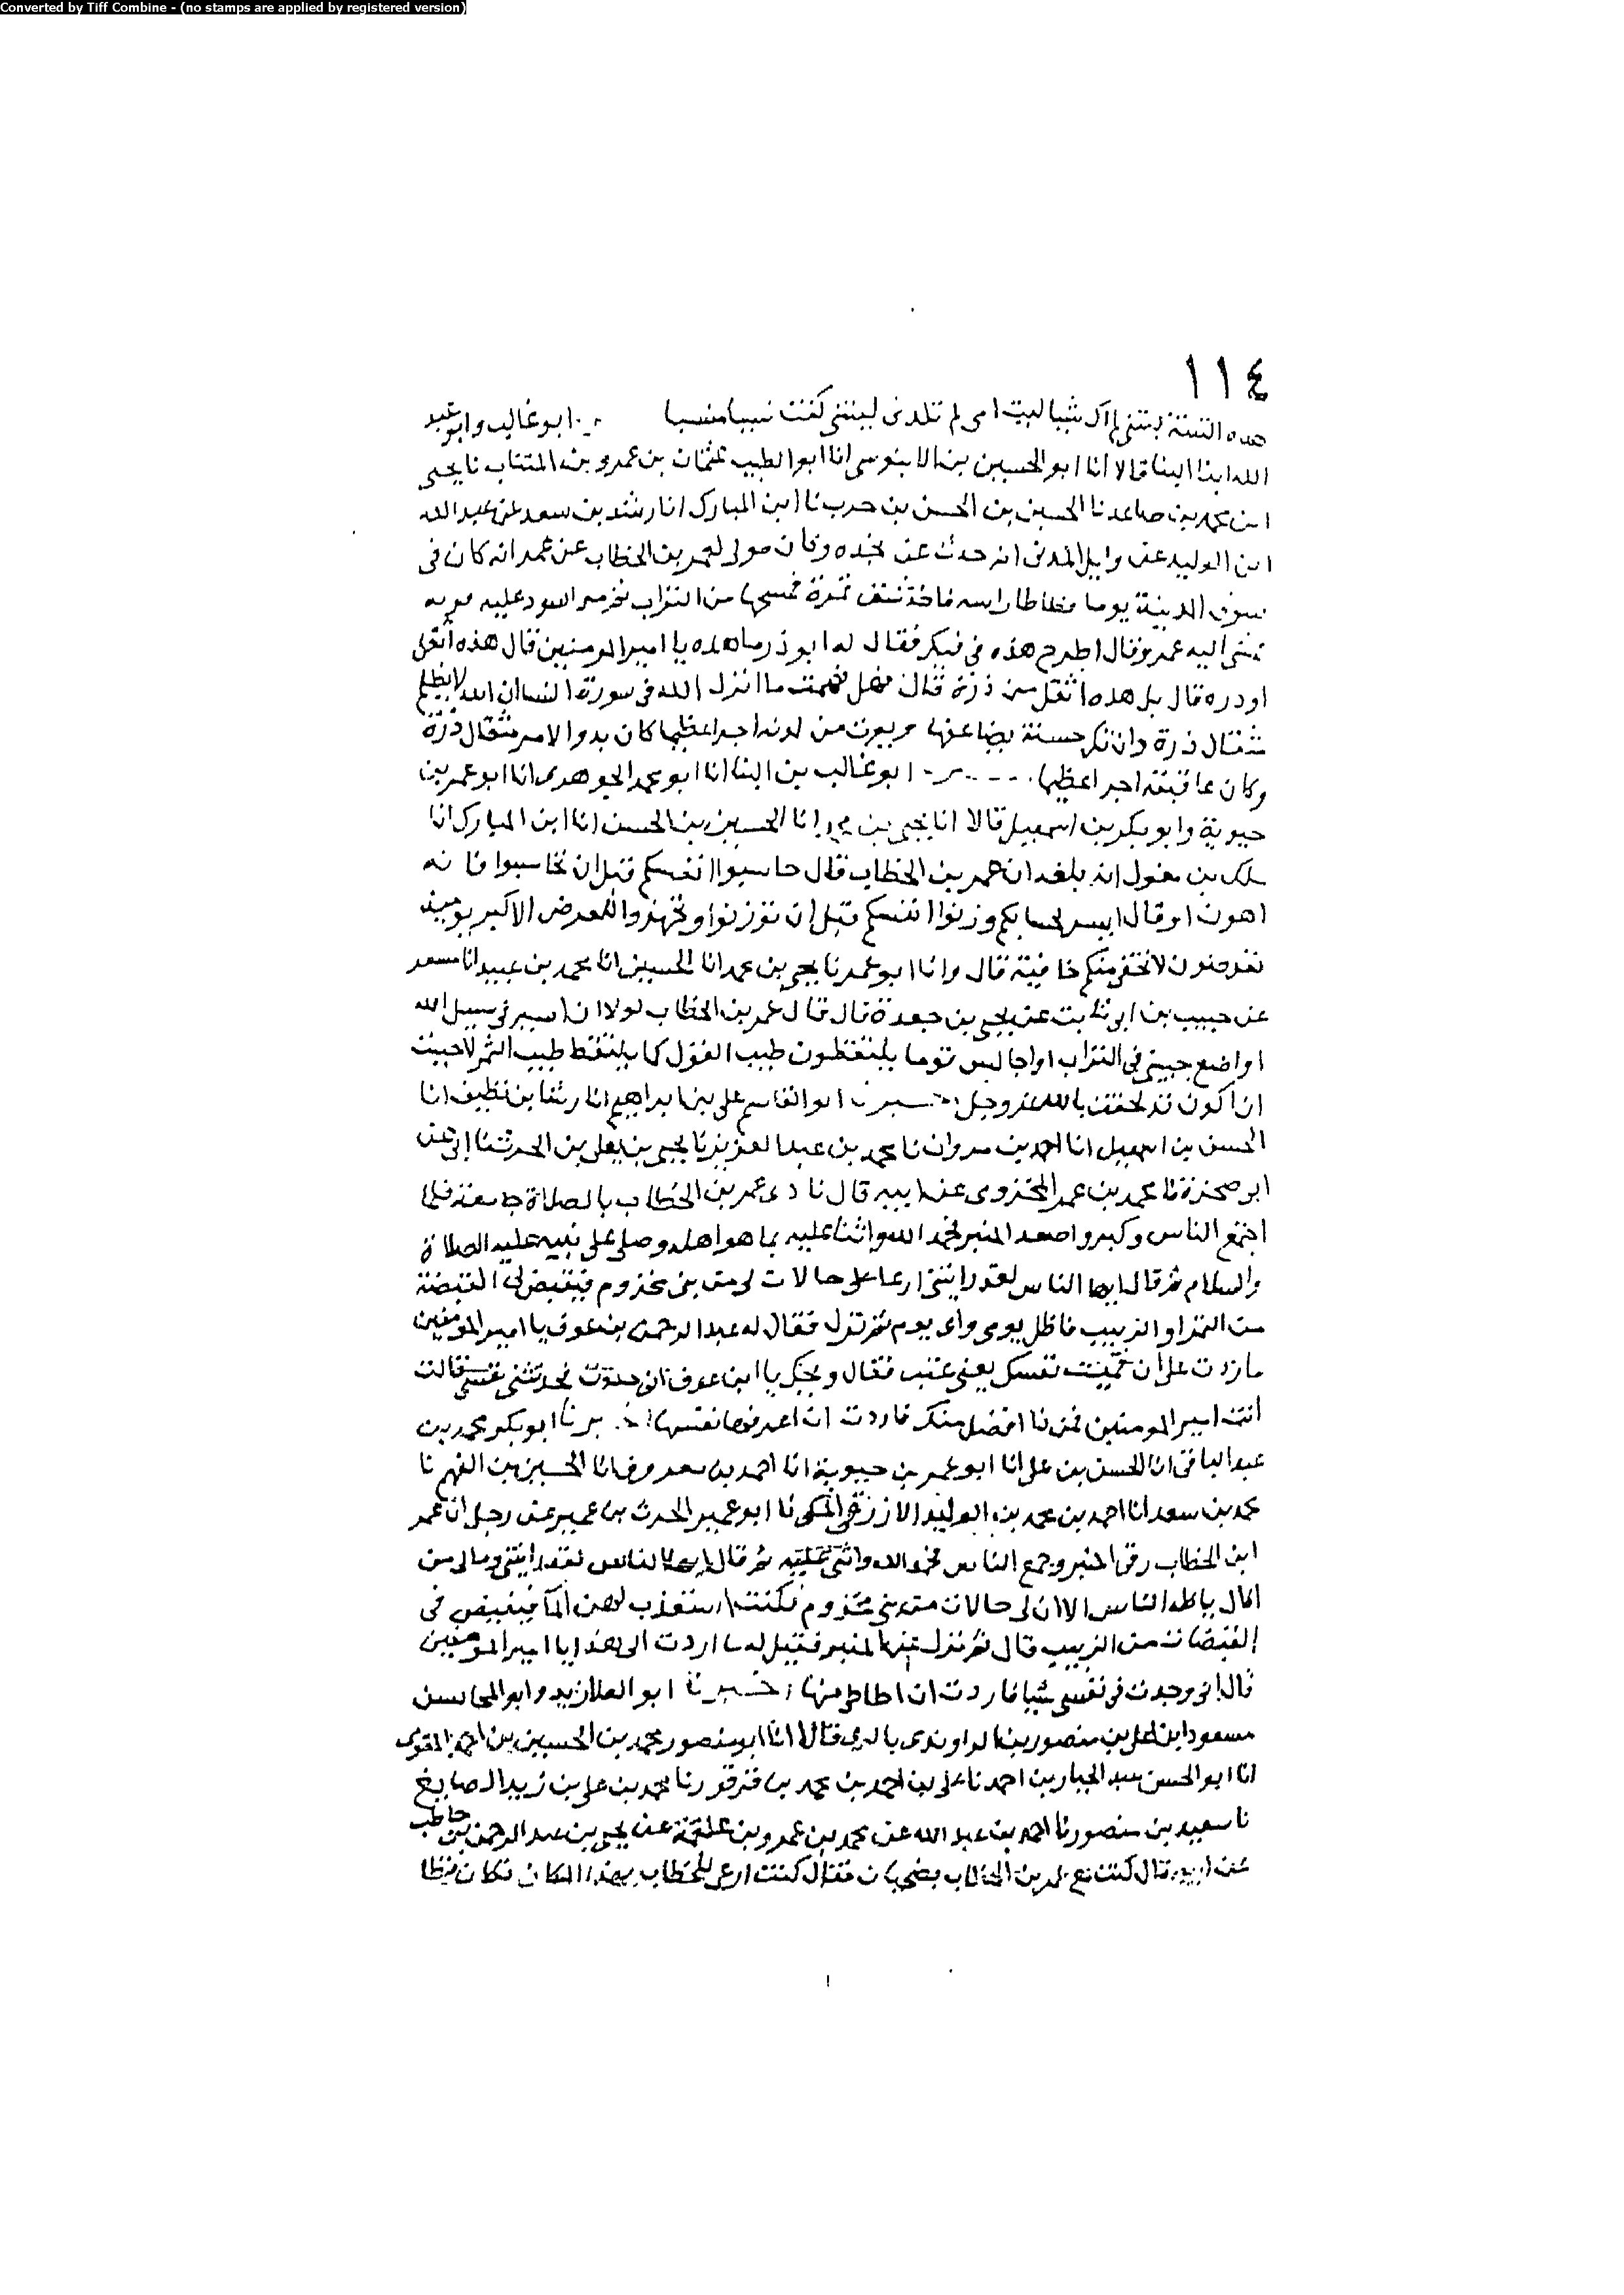 Converted by Tiff Combine - (no stamps are applied by registered version)
١١٤
هذه التبنة ليتني لم اك شيا ليت امي لم تلدني ليتني كنت نسيا منسيا ابو غالب وابو عبد
الله ابنا البنا قالا انا ابو الحسين بن الابنوسي انا ابو الطيب عثمان بن عمرو بن المنتاب نا يحيى
ابن محمد بن صاعد نا الحسين بن الحسن بن حرب نا ابن المبارك انا رشد بن سعد عن عبد الله
ابن الوليد عن وايل المدني انه حدث عن جده وكان مولى لعمر بن الخطاب عن عمر انه كان في
سوق المدينة يوما فطاطا راسه فاخذ شق تمرة فمسحها من التراب ثم مر اسود عليه قربة
فمشى اليه عمر وقال اطرح هذه في فيك فقال له ابو ذر ما هذه يا امير المومنين قال هذه اثقل
او ذره قال بل هذه اثقل من ذرة قال فهل فهمت ما انزل الله في سورة النسا ان الله لا يظلم
مثقال ذرة وان تك حسنة يضاعفها ويوت من لدنه اجرا عظيما كان بدو الامر مثقال ذرة
وكان عاقبته اجرا عظيما ابو غالب بن البنا انا ابو محمد الجوهري انا ابو عمر بن
حيوية وابو بكر بن اسمعيل قالا انا يحيى بن محمد انا الحسين بن الحسن انا ابن المبارك انا
ملك بن مغول انه بلغه ان عمر بن الخطاب قال حاسبوا انفسكم قبل ان تحاسبوا فانه
اهون او قال ايسر لحسابكم وزنوا انفسكم قبل ان توزنوا وتجهزوا للعرض الاكبر يوميذ
تعرضون لا تخفى منكم خافية قال وانا ابو عمر نا يحيى بن محمد انا الحسين انا محمد بن عبيد انا مسعر
عن حبيب بن ابي ثابت عن يحيى بن جعدة قال قال عمر بن الخطاب لولا ان اسير في سبيل الله
او اضع جبيني في التراب او اجالس قوما يلتقطون طيب القول كما يلتقط طيب الثمر لاحببت
ان اكون قد لحقت بالله عز وجل اخبرنا ابو القاسم علي بن ابراهيم انا رشا بن نظيف انا
الحسن بن اسمعيل انا احمد بن مروان نا محمد بن عبد العزيز نا يحيى بن يعلى بن الحرث نا ابي عن
ابي صخرة نا محمد بن عمر المخزومي عن ابيه قال نادى عمر بن الخطاب بالصلاة جامعة فلما
اجتمع الناس وكبروا صعد المنبر فحمد الله واثنا عليه بما هو اهله وصلى على نبيه عليه الصلاة
والسلام ثم قال ايها الناس لقد رايتني ارعا على خالات لي من بني مخزوم فيقبض لي القبضة
من التمر او الزبيب فاظل يومي واي يوم ثم نزل فقال له عبد الرحمن بن عوف يا امير المومنين
ما زدت على ان قميت نفسك يعني عبت فقال ويحك يا ابن عوف اني خلوت فحدثتني نفسي قالت
انت امير المومنين فمن ذا افضل منك فاردت ان اعرفها نفسها اخبرنا ابو بكر محمد بن
عبد الباقي انا الحسن بن علي انا ابو عمر بن حيوية انا احمد بن معروف انا الحسين بن الفهم نا
محمد بن سعد انا احمد بن محمد بن الوليد الازرقي المكي نا ابو عمير الحرث بن عمير عن رجل ان عمر
ابن الخطاب رقى المنبر وجمع الناس فحمد الله واثنى عليه ثم قال ايها الناس لقد رايتني ومالي من
اكال ياكله الناس الا ان لي خالات من بني مخزوم فكنت استعذب لهن الما فيقبضن لي
القبضات من الزبيب قال ثم نزل عن المنبر فقيل له ما اردت الى هذا يا امير المومنين
قال اني وجدت في نفسي شيا فاردت ان اطاطي منها اخبرنا ابو العلا زيد وابو المحاسن
مسعود ابنا علي بن منصور بن الراوندي بالري قالا انا ابو منصور محمد بن الحسين بن احمد المقومي
انا ابو الحسن عبد الجبار بن احمد نا علي بن احمد بن محمد بن قرقور نا محمد بن علي بن زيد الصايغ
نا سعيد بن منصور نا احمد بن عبد الله عن محمد بن عمرو بن علقمة عن يحيى بن عبد الرحمن بن حاطب
عن ابيه قال كنت مع عمر بن الخطاب بضجنان فقال كنت ارعى للخطاب بهذا المكان فكان فظا